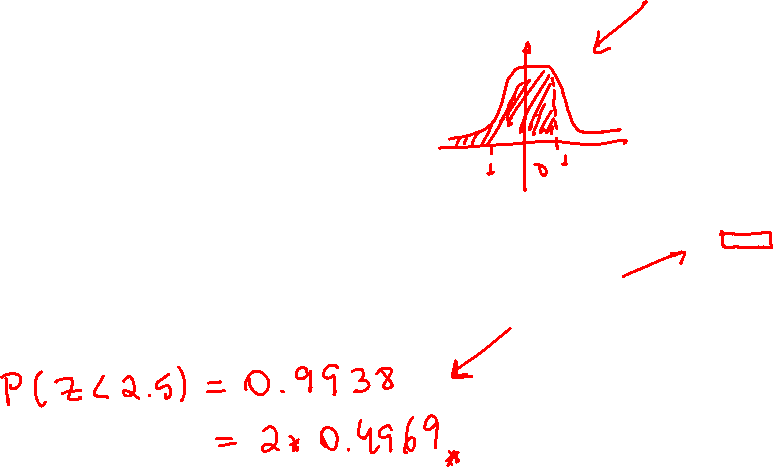 1 0 1
P(Z<2.5) = 0.9938
= 2* 0.4969*